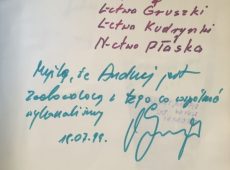 L-ctwo Gruszki
L-ctwo Kudrynki
N-ctwo Płaska
Myślę, że Andrzej jest
zadowolony z tego co wspólnie
wykonaliśmy
18.07.99.